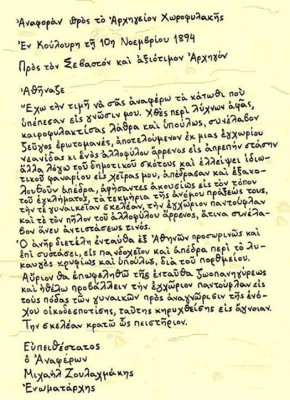 Ἀναφορὰν πρὸς τὸ Ἀρχηγεῖον Χωροφυλακῆς
Ἐν Κούλουρῃ τῇ 10ῃ Νοεμβρίου 1894
Πρὸς τὸν Σεβαστὸν καὶ ἀξιότιμον Ἀρχηγὸν
Ἀθήναζε
Ἔχω τὴν τιμὴ νὰ σᾶς ἀναφέρω τὰ κάτωθι ποὺ
ὑπέπεσαν εἰς γνῶσιν μου. Χθὲς περὶ λύχνων ἀφάς,
καιροφυλακτίσας λάθρα καὶ ὑπούλως, συνέλαβον
ζεῦγος ἐρωτομανές, ἀποτελούμενον ἐκ μιας ἐγχωρίου
νεανίδας κι ἑνὸς ἀλλοφύλου ἄρρενος εἰς ἀπρεπὴν στάσιν
ἀλλὰ λόγω τοῦ δημοτικοῦ σκότους καὶ ἐλλείψει ἰδιω-
τικοῦ φαναρίου εἰς χείρας μου, ἀπέδρασαν καὶ ἐξακο-
λουθοῦν ἀπέδρα, ἀφήσαντες ἀκουσίως εἰς τὸν τόπον
τοῦ ἐγκλήματος, τὰ τεκμήρια τῆς ἀνόμου πράξεως τους,
τὴν τε γυναικεῖαν σκελέαν, τὴν ἐγχώριον παντούφλαν
καὶ τὸ τὸν πῆλον τοῦ ἀλλοφύλου ἄρρενος, ἅτινα συνέλα-
βον ἄνευ ἀντιστάσεως τινός.
Ὁ ἀνὴρ διετέλη ἐνταῦθα ἐξ Ἀθηνῶν προσωρινῶς καὶ
ἐπὶ συστάσει, εἰς πανδοχεῖον καὶ ἀπέδρα περὶ τὸ λυ-
καυγὲς κρυφίως καὶ ὑπούλως, διὰ τοῦ πορθμείου.
Αὔριον θὰ ἐπωφεληθῶ τῆς ἐνταῦθα ζωοπανηγύρεως
καὶ ἤθελω προβάλλειν τὴν ἐγχώριον παντούφλαν εἰς
τοὺς πόδας τῶν γυναικῶν πρὸς ἀναγνώρισιν τῆς ἐνό-
χου οἰκοδεσποτίσης, ταύτης κηρυχθείσης εἰς ἄγνοιαν.
Τὴν σκελέαν κρατῶ ὡς πειστήριον.
Εὐπειθέστατος
ὁ Ἀναφέρων
Μιχαὴλ Ζουλαχμάκης
Ἐνωματάρχης